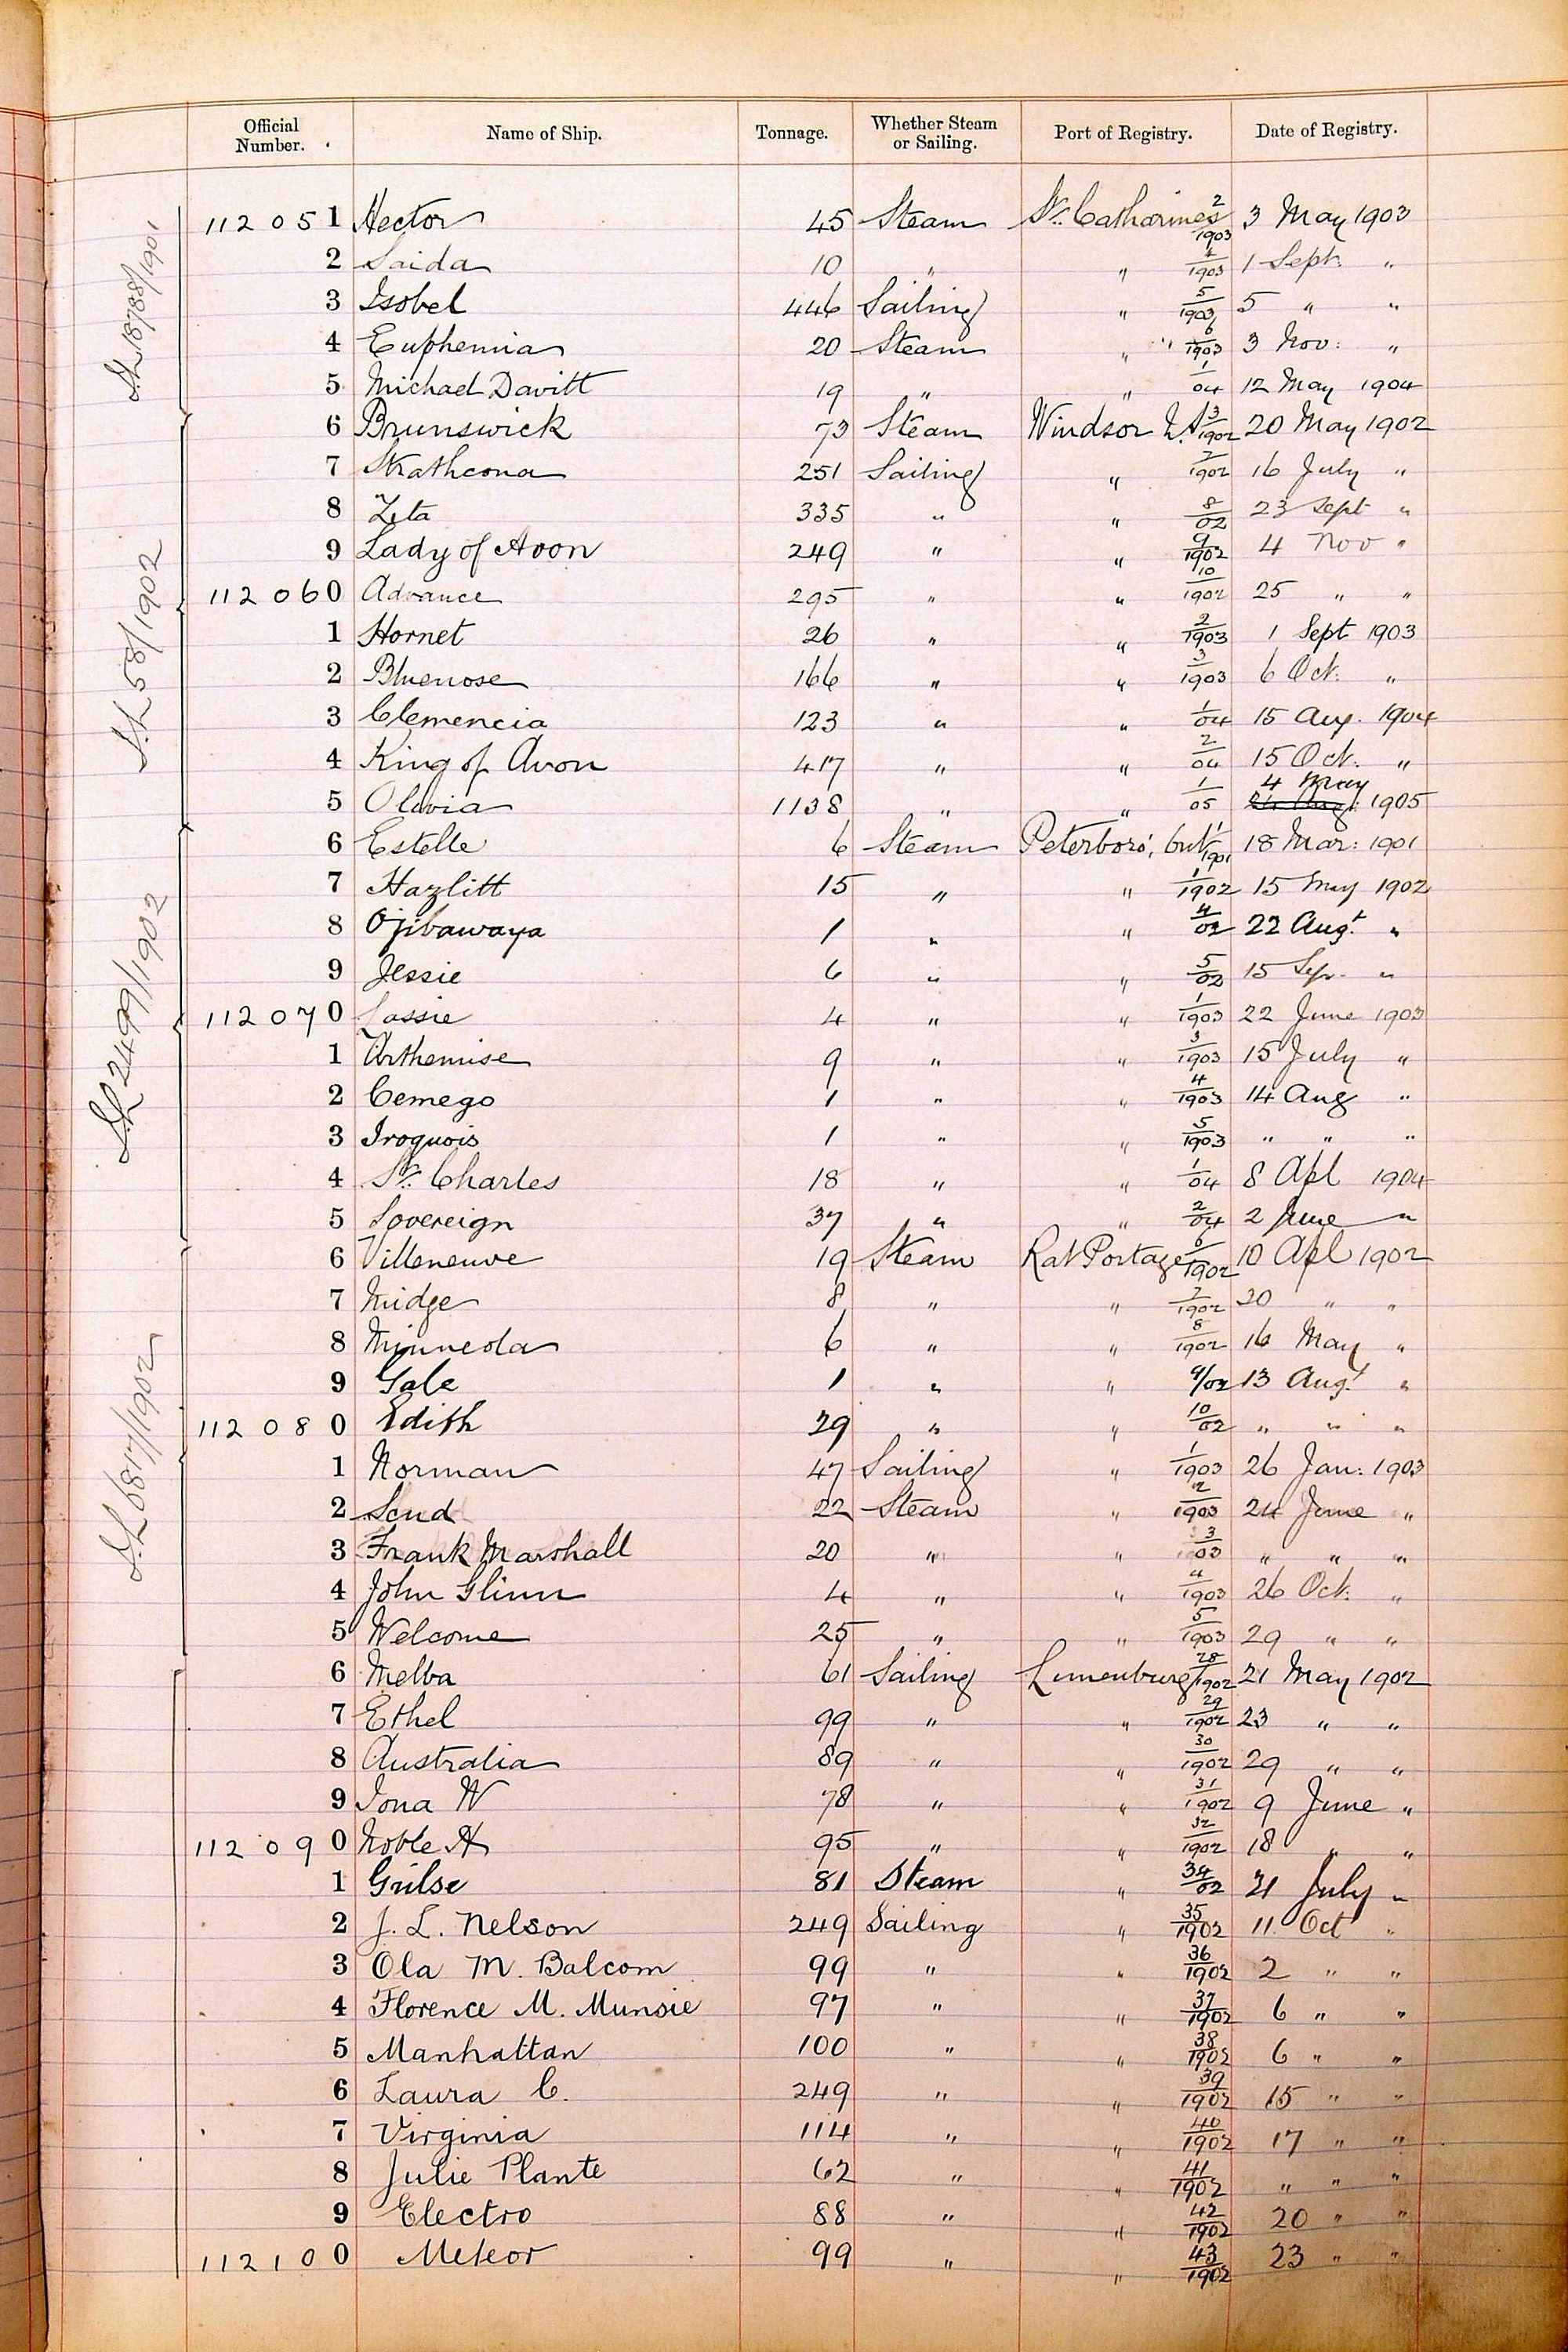 Official Number. Name of Ship. Tonnage. Whether Steam or Sailing. Port of Registry. Date of Registry.
112 05 1 Hector 45 Steam St. Catharines 2/1903 3 May 1903
2 Saida 10 " " 4/1903 1 Sept. "
3 Isobel 446 Sailing " 5/1903 5 " "
4 Euphemia 20 Steam " " 6/1903 3 Nov: "
5 Michael Davitt 19 " " 1/04 12 May 1904
6 Brunswick 73 Steam Windsor N.S. 3/1902 20 May 1902
7 Strathcona 251 Sailing " 7/1902 16 July "
8 Zeta 335 " " 8/02 23 Sept "
9 Lady of Avon 249 " " 9/1902 4 Nov "
112 06 0 Advance 295 " " 10/1902 25 " "
1 Hornet 26 " " 2/1903 1 Sept 1903
2 Bluenose 166 " " 3/1903 6 Oct. "
3 Clemencia 123 " " 1/04 15 Aug. 1904
4 King of Avon 417 " " 2/04 15 Oct. "
5 Olivia 1138 " " 1/05 4 May 1905
6 Estelle 6 Steam Peterboro', Ont 1/1901 18 Mar: 1901
7 Hazlitt 15 " " 1/1902 15 May 1902
8 Ojibawaya 1 " " 4/02 22 Augt. "
9 Jessie 6 " " 5/02 15 Sep. "
112 07 0 Lassie 4 " " 1/1903 22 June 1903
1 Arthemise 9 " " 3/1903 15 July "
2 Cemego 1 " " 4/1903 14 Aug "
3 Iroquois 1 " " 5/1903 " " "
4 St. Charles 18 " " 1/04 8 Apl 1904
5 Sovereign 37 " " 2/04 2 June "
6 Villeneuve 19 Steam Rat Portage 6/1902 10 Apl 1902
7 Midge 8 " " 7/1902 30 " "
8 Minneola 6 " " 8/1902 16 May "
9 Gale 1 " " 9/02 13 Augt. "
112 08 0 Edith 29 " " 10/02 " " "
1 Norman 47 Sailing " 1/1903 26 Jan: 1903
2 Scud 22 Steam " 2/1903 24 June "
3 Frank Marshall 20 " " 3/03 " " "
4 John Glinn 4 " " 4/1903 26 Oct. "
5 Welcome 25 " " 5/1903 29 " "
6 Melba 61 Sailing Lunenburg 28/1902 21 May 1902
7 Ethel 99 " " 29/1902 23 " "
8 Australia 89 " " 30/1902 29 " "
9 Iona W 78 " " 31/1902 9 June "
112 09 0 Noble H 95 " " 32/1902 18 " "
1 Grilse 81 Steam " 34/02 21 July "
2 J. L. Nelson 249 Sailing " 35/1902 11 Oct "
3 Ola M. Balcom 99 " " 36/1902 2 " "
4 Florence M. Munsie 97 " " 37/1902 6 " "
5 Manhattan 100 " " 38/1902 6 " "
6 Laura C. 249 " " 39/1902 15 " "
7 Virginia 114 " " 40/1902 17 " "
8 Julie Plante 62 " " 41/1902 " " "
9 Electro 88 " " 42/1902 20 " "
112 10 0 Meteor 99 " " 43/1902 23 " "
18788/1901
58/1902
2499/1902
6817/1902